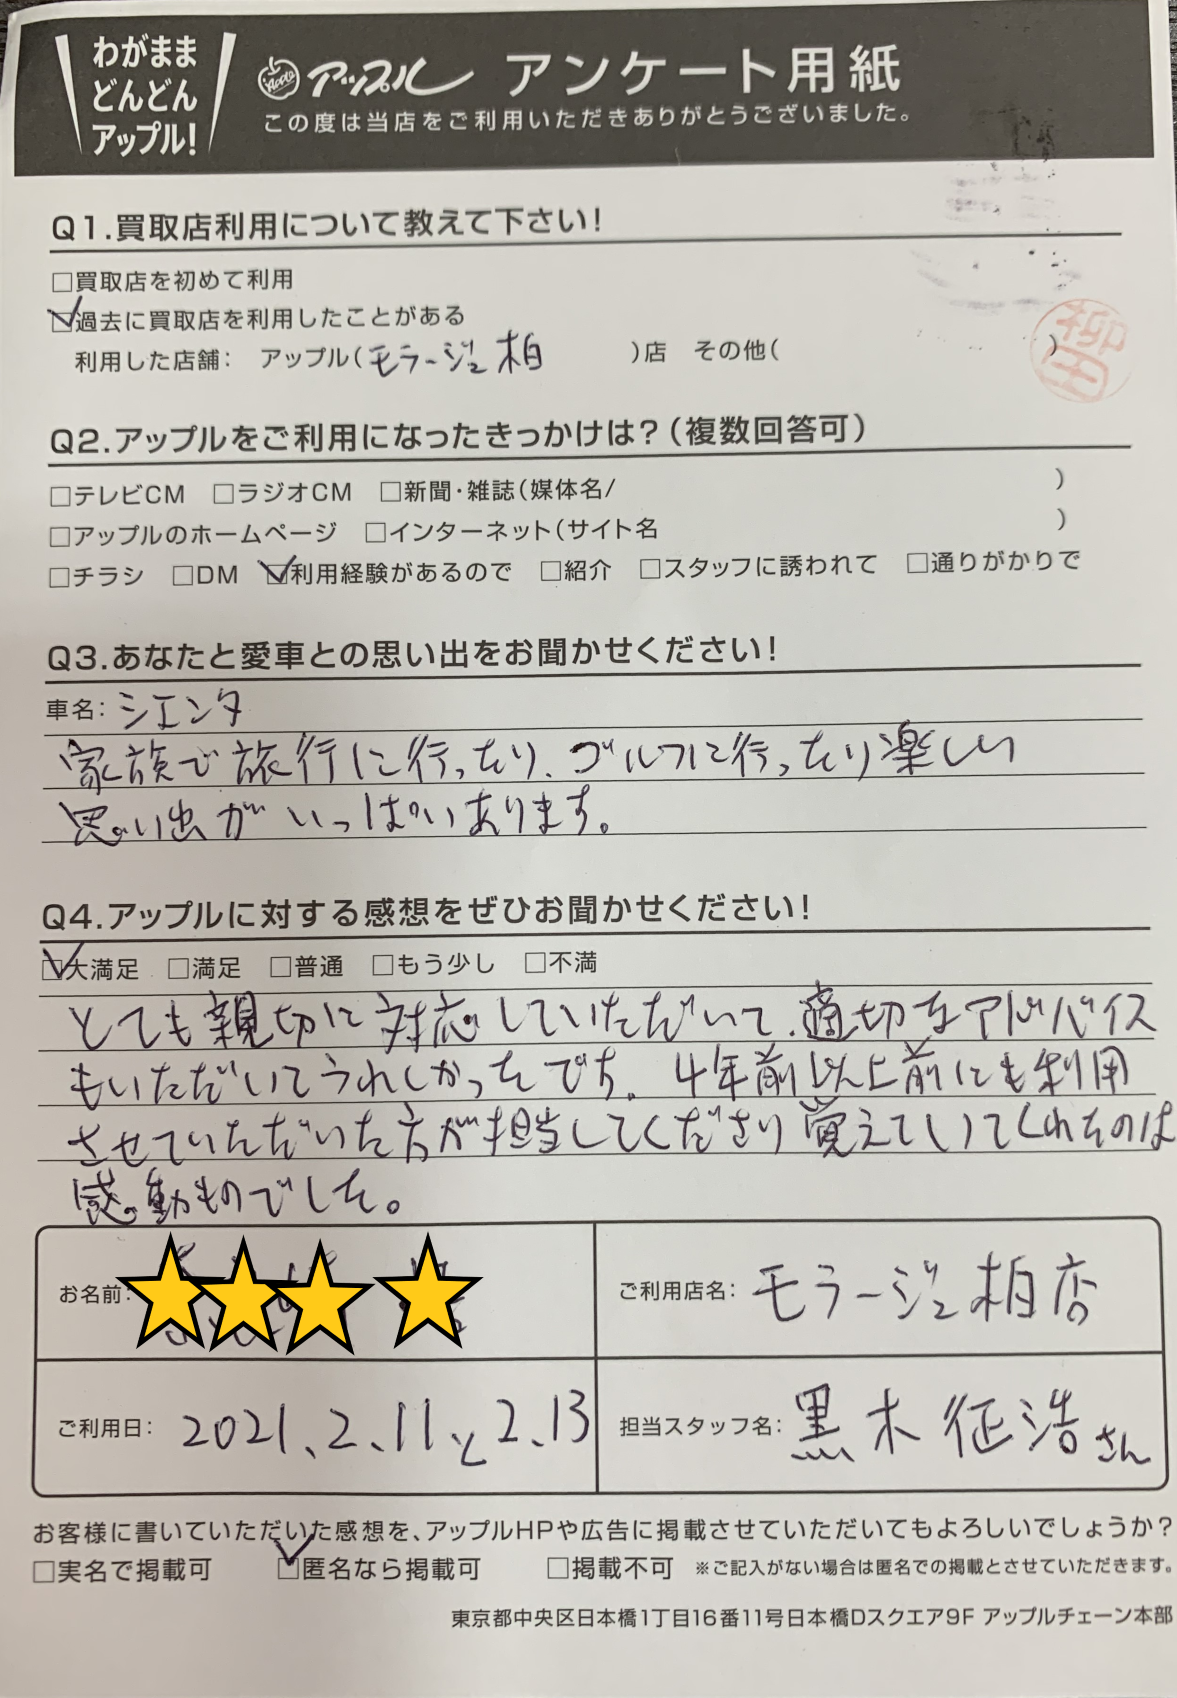 わがまま
どんどん
アップル!
Apple アップル アンケート用紙
この度は当店をご利用いただきありがとうございました。
Q1.買取店利用について教えて下さい!
□買取店を初めて利用
☑過去に買取店を利用したことがある
利用した店舗: アップル(モラージュ柏 )店 その他( )
柳田
Q2.アップルをご利用になったきっかけは?(複数回答可)
□テレビCM □ラジオCM □新聞・雑誌(媒体名/ )
□アップルのホームページ □インターネット(サイト名 )
□チラシ □DM ☑利用経験があるので □紹介 □スタッフに誘われて □通りがかりで
Q3.あなたと愛車との思い出をお聞かせください!
車名:シエンタ
家族で旅行に行ったり、ゴルフに行ったり楽しい
思い出がいっぱいあります。
Q4.アップルに対する感想をぜひお聞かせください!
☑大満足 □満足 □普通 □もう少し □不満
とても親切に対応していただいて、適切なアドバイス
もいただいてうれしかったです。4年前以上前にも利用
させていただいた方が担当してくださり覚えていてくれたのは
感動ものでした。
お名前:
ご利用店名: モラージュ柏店
ご利用日: 2021、2、11と2、13
担当スタッフ名: 黒木征浩さん
お客様に書いていただいた感想を、アップルHPや広告に掲載させていただいてもよろしいでしょうか?
□実名で掲載可 ☑匿名なら掲載可 □掲載不可 ※ご記入がない場合は匿名での掲載とさせていただきます。
東京都中央区日本橋1丁目16番11号日本橋Dスクエア9F アップルチェーン本部